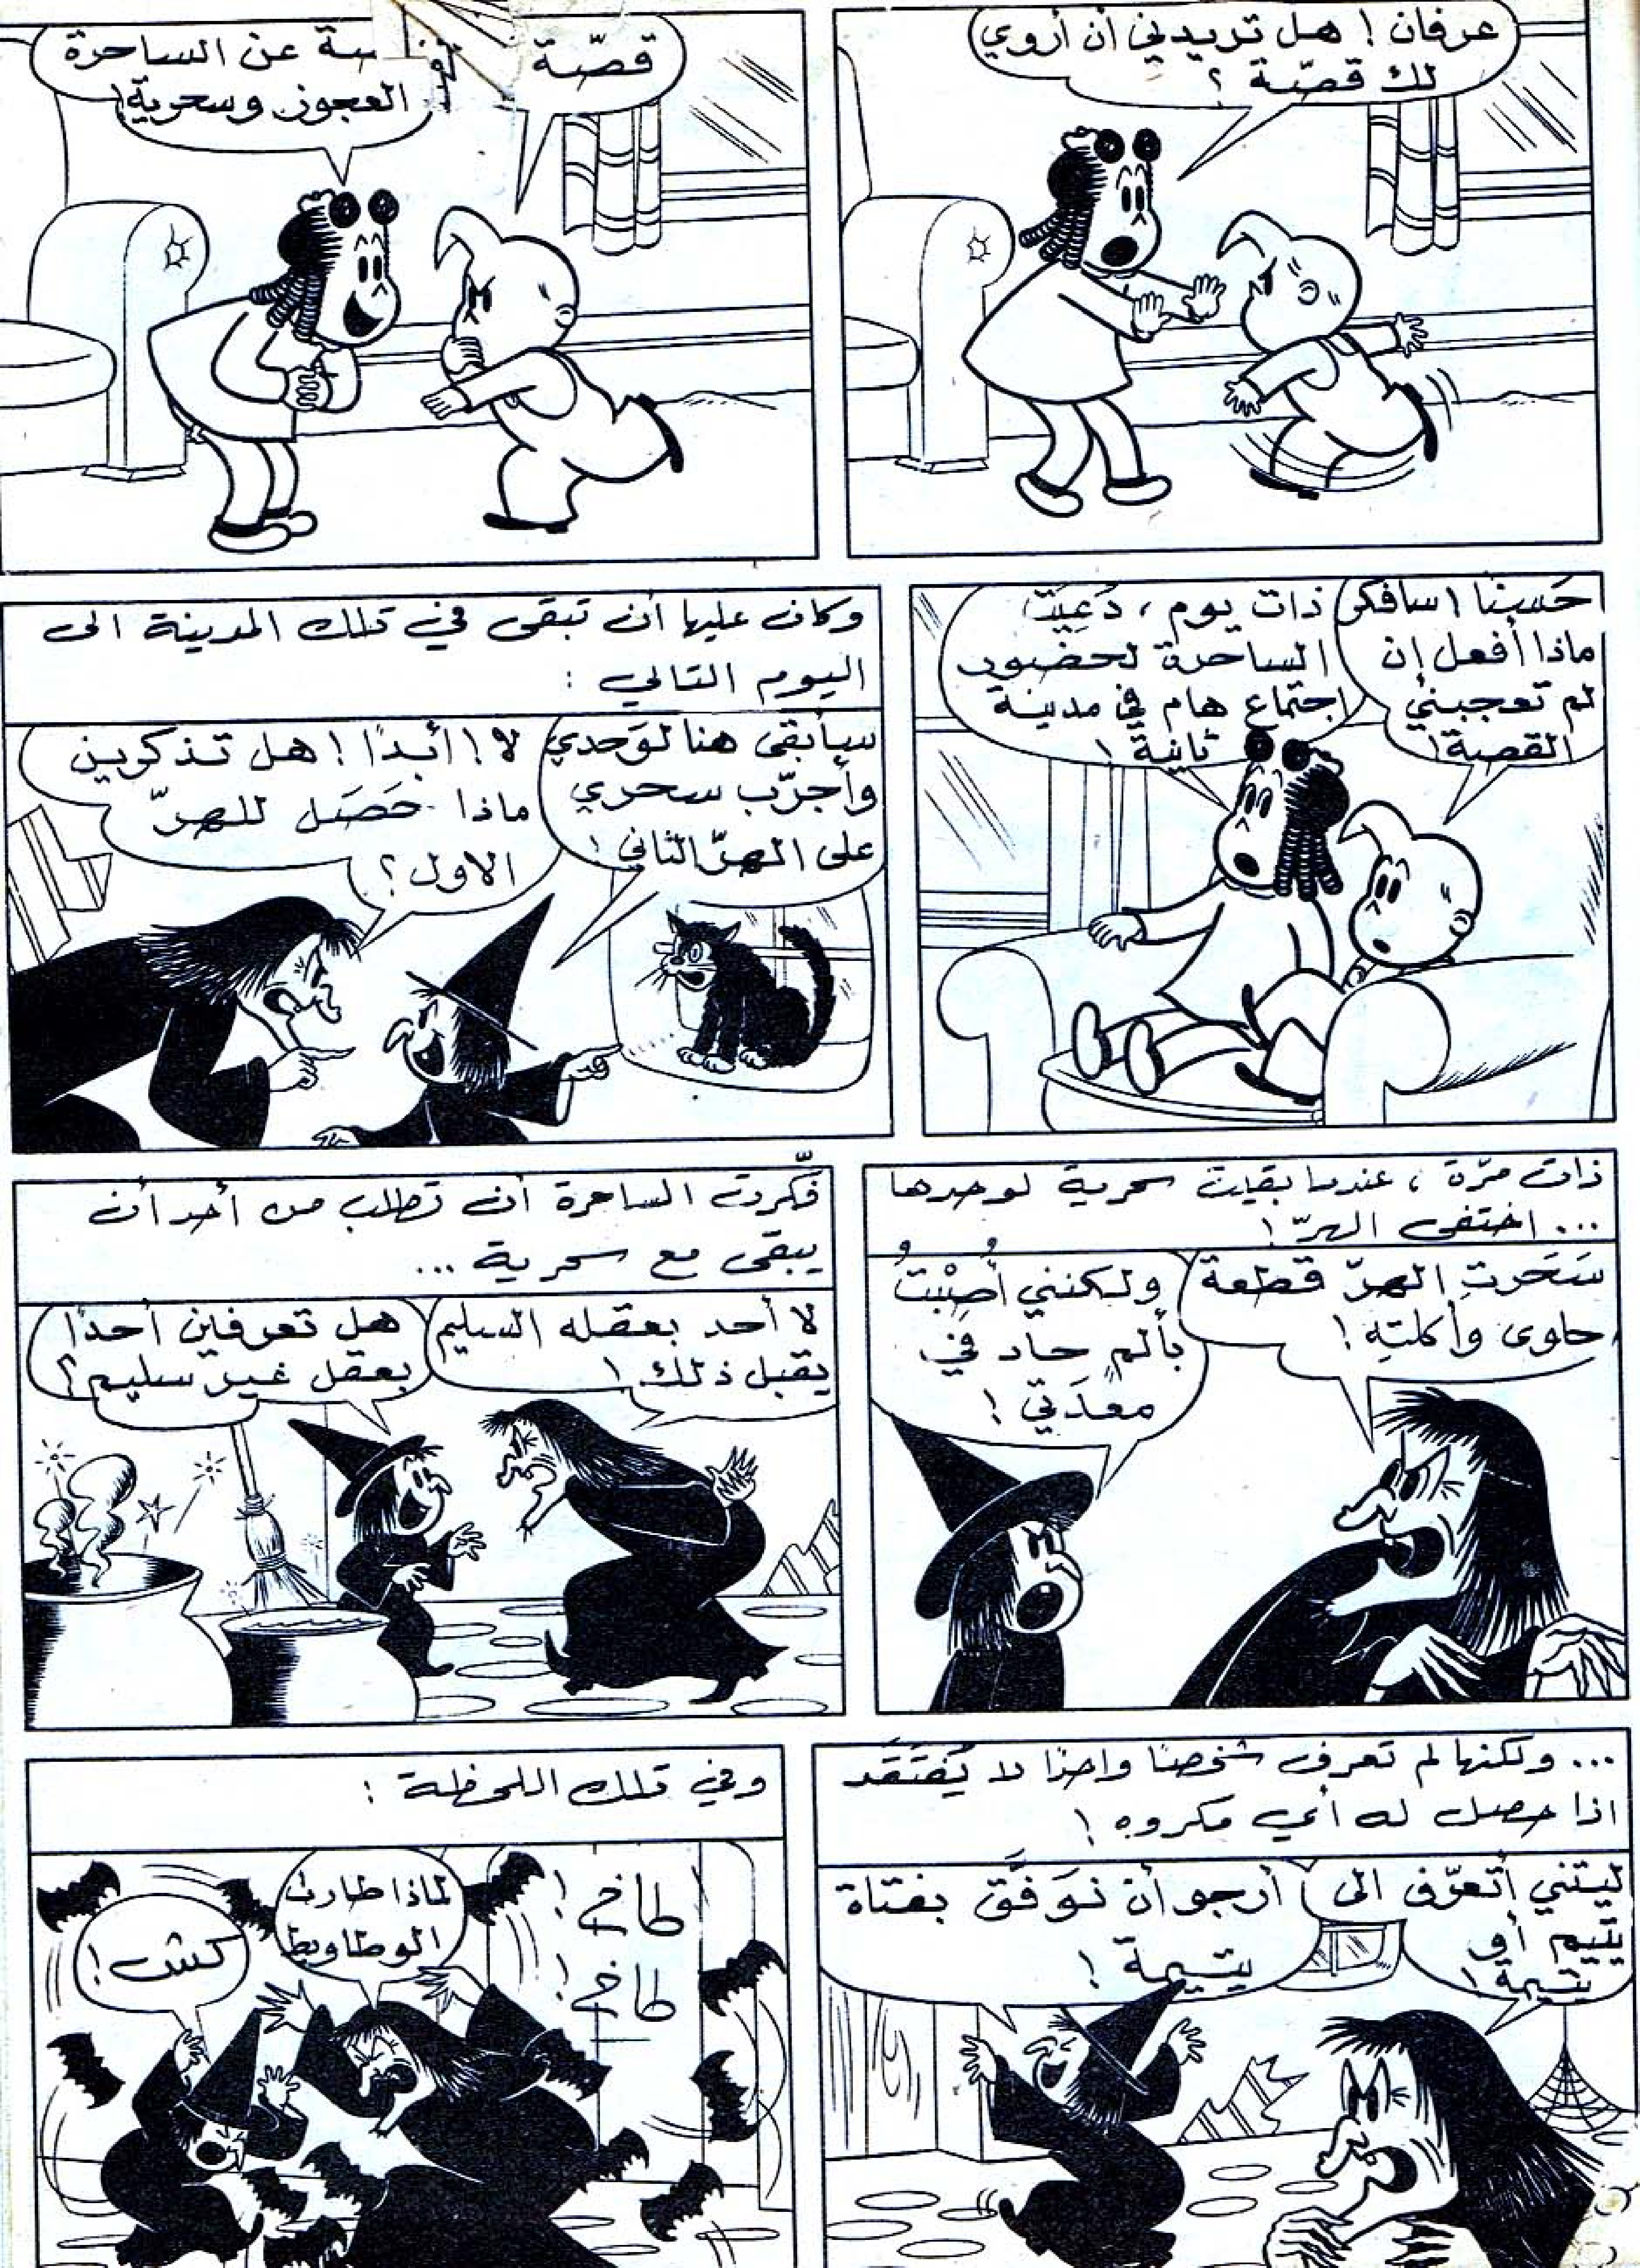 عرفان! هل تريدني أن أروي
لك قصّة؟
قصّة
سة عن الساحرة
العجوز وسحرية!
حَسنا! سافكر
ماذا أفعل إن
لم تعجبني
القصة!
ذات يوم، دُعِيَت
الساحرة لحضور
اجتماع هام في مدينة
ثانية!
وكان عليها أن تبقى في تلك المدينة الى
اليوم التالي:
سأبقى هنا لوَحدي
وأجرّب سحري
على الهرّ الثاني!
لا! أبدًا! هل تذكرين
ماذا حَصَل للهرّ
الاول؟
ذات مرّة، عندما بقيت سحرية لوحدها
... اختفى الهرّ!
سَحَرتِ الهرّ قطعة
حلوى وأكلتِهِ!
ولكنني أُصِبْتُ
بألمٍ حاد في
معدَتي!
فكّرت الساحرة أن تطلب من أحد أن
يبقى مع سحرية ...
لا أحد بعقله السليم
يقبل ذلك!
هل تعرفين أحدًا
بعقل غير سليم؟
... ولكنها لم تعرف شخصًا واحدًا لا يُفتَقَد
اذا حصل له أي مكروه!
ليتني أتعرّف الى
يتيم أو
يتيمة!
أرجو أن نوَفَّق بفتاة
يتيمة!
وفي تلك اللحظة:
طاخ!
طاخ!
لماذا طارت
الوطاويط
كش!